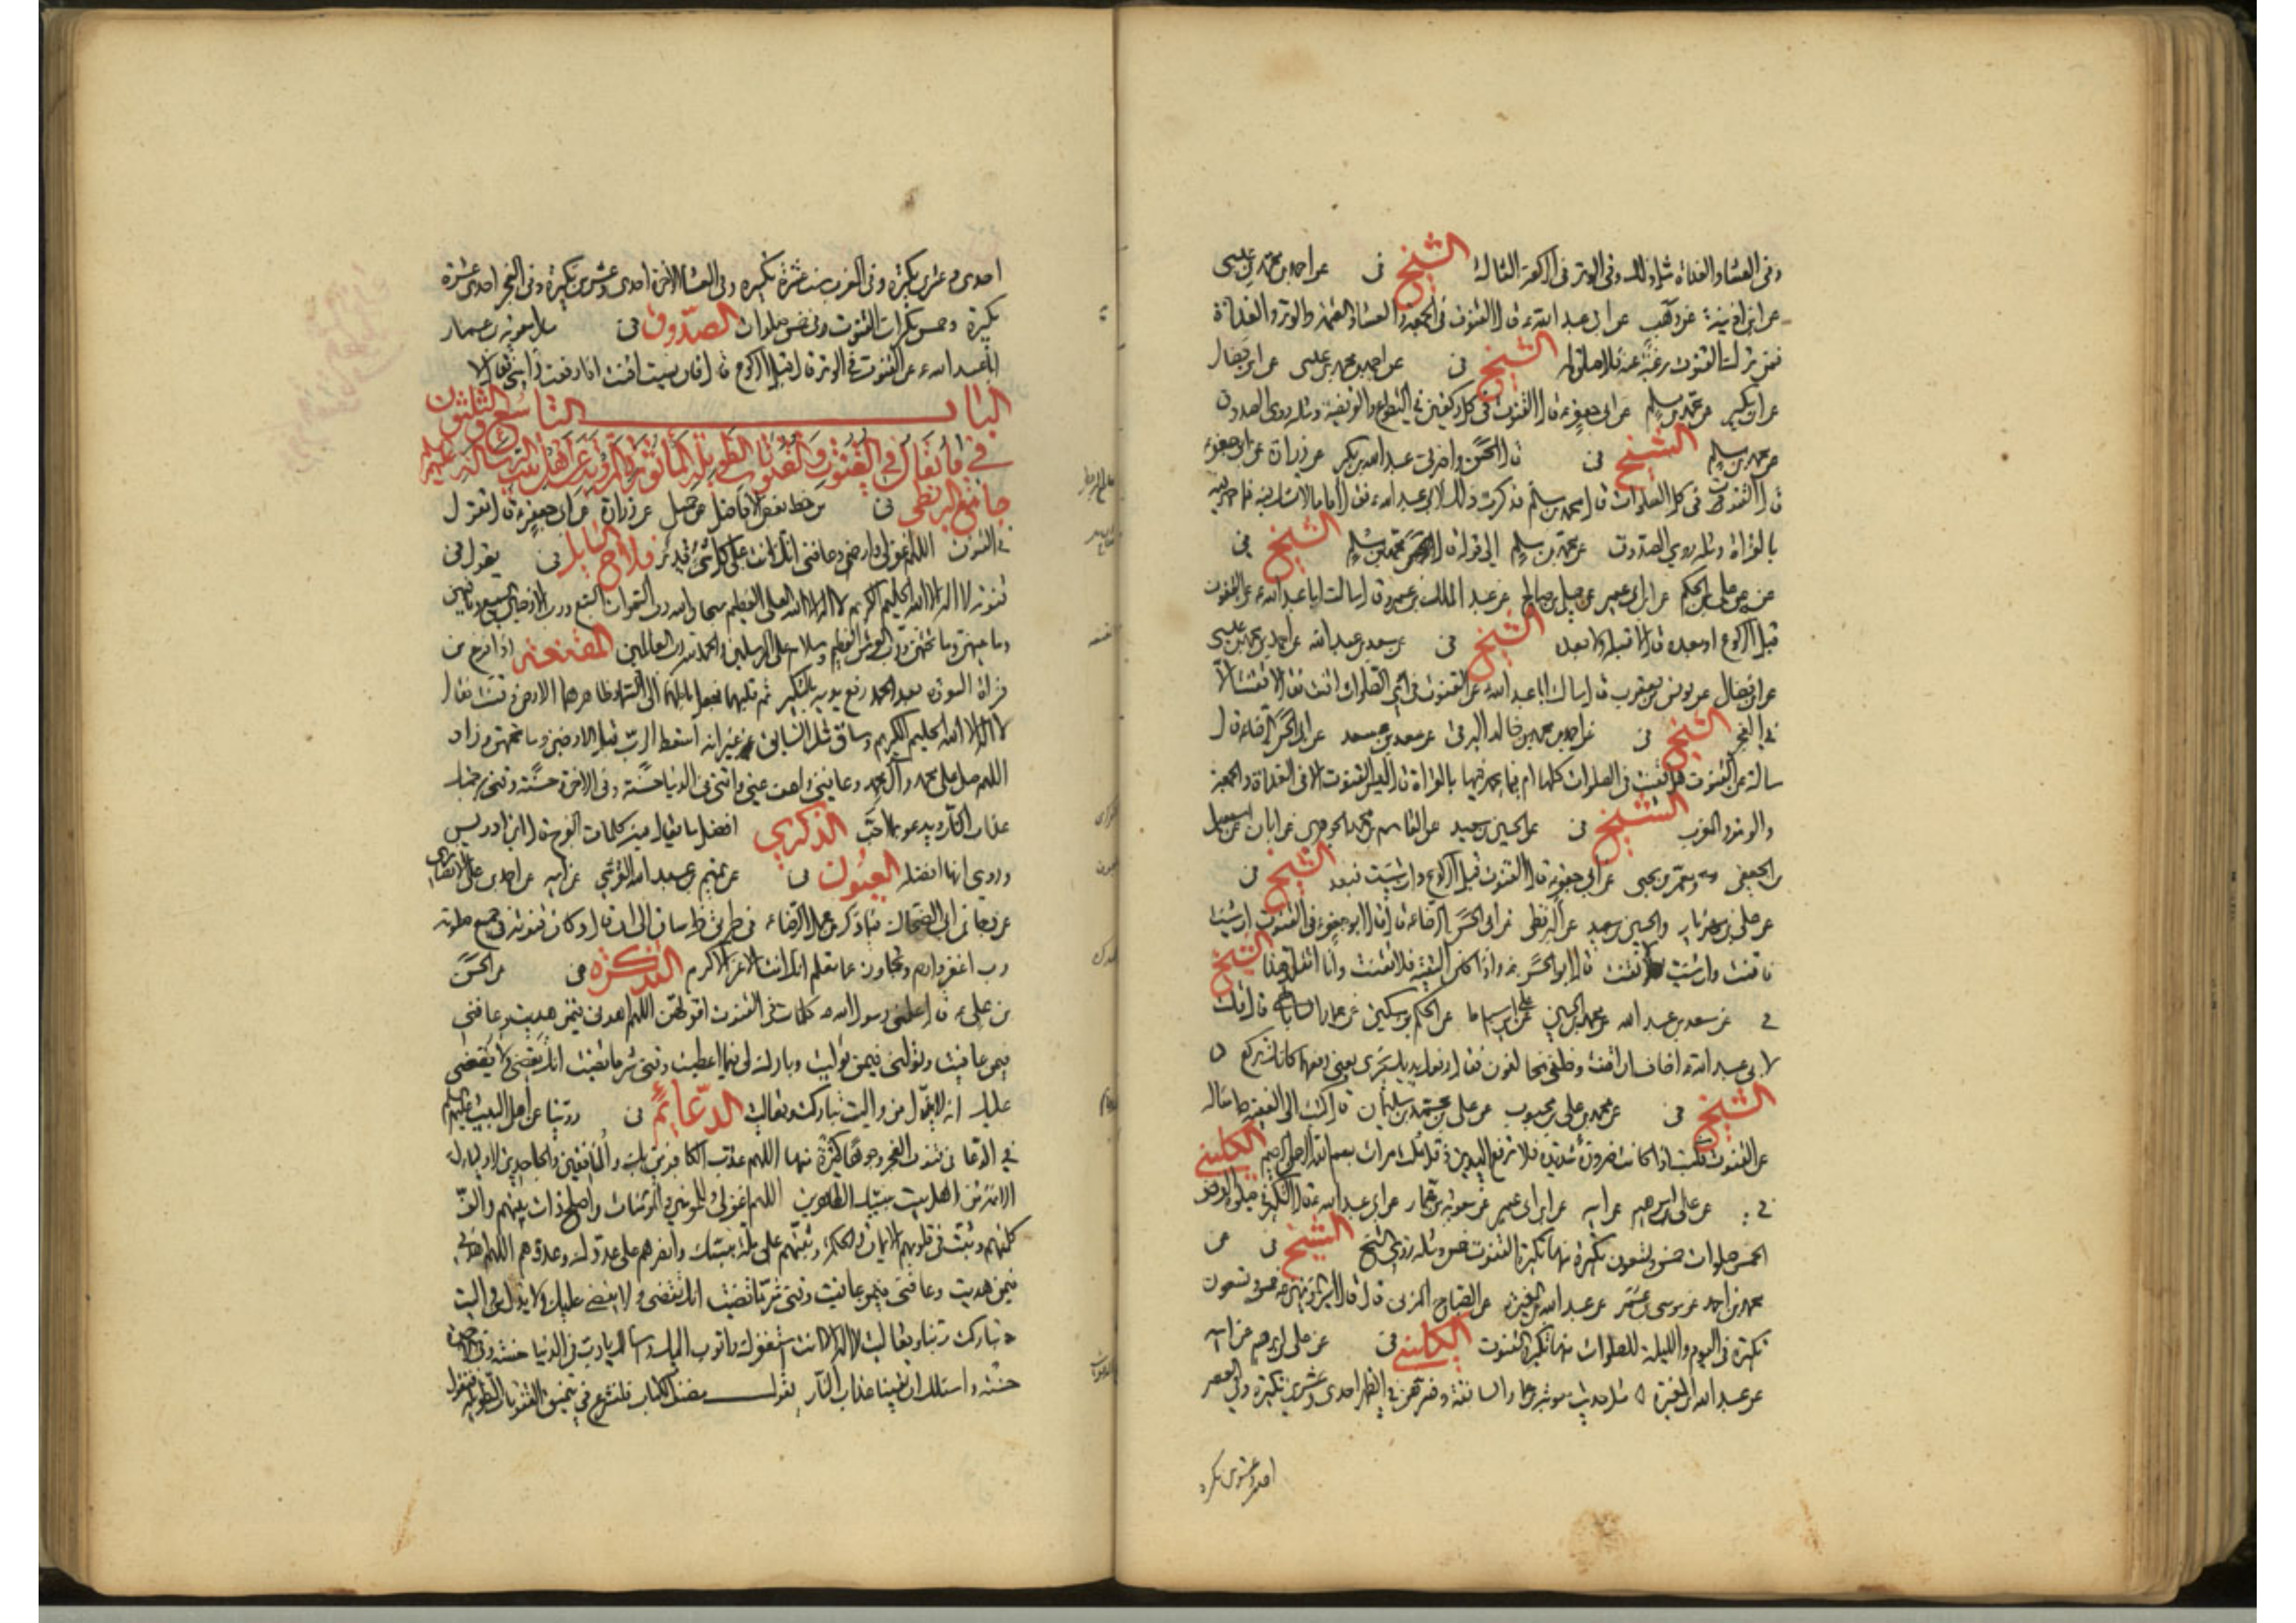 وفى العشاء والغداة مثل ذلك وفى الوتر فى الركعة الثالثة الشيخ فى عن احمد بن محمد بن عيسى
عن ابن اذينة عن وهب عن ابى عبد الله ع قال القنوت فى الجمعة والعشاء والعتمة والوتر والغداة
فمن ترك القنوت رغبة عنه فلا صلوة له الشيخ فى عن احمد بن محمد بن عيسى عن ابن فضال
عن ابن بكير عن محمد بن مسلم عن ابى جعفر ع قال القنوت فى كل ركعتين فى التطوع والفريضة ومثله روى الصدوق
عن محمد بن مسلم الشيخ فى قال الحسن واخبرنى عبد الله بن بكير عن زرارة عن ابى جعفر ع
قال القنوت فى كل الصلوات قال محمد بن مسلم فذكرت ذلك لابى عبد الله ع فقال اما ما لا يشك فيه فما جهر فيه
بالقراة ومثله روى الصدوق عن محمد بن مسلم الى قوله قال محمد بن مسلم الشيخ فى
عن على بن الحكم عن ابن ابى عمير عن جميل بن صالح عن عبد الملك بن عمرو قال سالت ابا عبد الله ع عن القنوت
قبل الركوع او بعده قال لا قبله ولا بعده الشيخ فى عن سعد بن عبد الله عن احمد بن محمد بن عيسى
عن ابن فضال عن يونس بن يعقوب قال سالت ابا عبد الله ع عن القنوت فى اى الصلوات اقنت فقال لا تقنت الا
فى الفجر الشيخ فى عن احمد بن محمد بن خالد البرقى عن سعد بن سعد عن ابى الحسن الرضا ع قال
سالته عن القنوت هل يقنت فى الصلوات كلها ام فيما يجهر فيها بالقراة قال ليس القنوت الا فى الغداة والجمعة
والوتر والمغرب الشيخ فى عن الحسين بن سعيد عن القاسم بن محمد الجوهرى عن ابان عن اسمعيل
بن الجعفى ومعمر بن يحيى عن ابى جعفر ع قال القنوت قبل الركوع وان شئت فبعد الشيخ فى
عن على بن مهزيار والحسين بن سعيد عن البزنطى عن ابى الحسن الرضا ع قال قال ابو جعفر ع فى القنوت ان شئت
فاقنت وان شئت لا تقنت قال ابو الحسن ع واذا كان التقية فلا تقنت وانا اتقلد هذا الشيخ
فى عن سعد بن عبد الله عن محمد بن الحسين عن الحكم بن مسكين عن عمار الساباطى قال قلت
لابى عبد الله ع اخاف ان اقنت وخلفى مخالفون فقال رفعك يديك يجزى يعنى رفعهما كانك تركع
الشيخ فى عن محمد بن على بن محبوب عن على بن محمد بن سليمان قال كتبت الى الفقيه ع اساله
عن القنوت فكتب اذا كانت ضرورة شديدة فلا ترفع اليدين وقل ثلث مرات بسم الله الرحمن الرحيم الكلينى
فى عن على بن ابرهيم عن ابيه عن ابن ابى عمير عن معوية بن عمار عن ابى عبد الله ع قال التكبير فى صلوة الفرض
الخمس صلوات خمس وتسعون تكبيرة منها تكبيرة القنوت خمس ومثله روى الشيخ الشيخ فى عن
محمد بن احمد عن موسى بن عمر عن عبد الله بن المغيرة عن الصباح المزنى قال قال امير المؤمنين ع خمس وتسعون
تكبيرة فى اليوم والليلة للصلوات منها تكبيرة القنوت الكلينى فى عن على بن ابرهيم عن ابيه
عن عبد الله بن المغيرة وفسرهن فى الظهر احدى وعشرين تكبيرة وفى العصر
احدى وعشرين تكبيرة
احدى وعشرين تكبيرة وفى المغرب ست عشرة تكبيرة وفى العشاء الاخرة احدى وعشرين تكبيرة وفى الفجر احدى عشرة
تكبيرة وخمس تكبيرات القنوت فى خمس صلوات الصدوق فى معوية بن عمار
ابا عبد الله ع عن القنوت فى الوتر قال قبل الركوع قال فان نسيت اقنت اذا رفعت راسى فقال لا
الباب التاسع والثلثون
فى ما يقال فى القنوت والقنوتات الطويلة الماثورة المروية عن اهل بيت الرسالة عليهم السلام
جامع البزنطى فى من خط بعض الافاضل عن جميل عن زرارة عن ابى جعفر ع قال تقول
فى القنوت اللهم اغفر لى وارحمنى وعافنى انك على كل شىء قدير فلاح السايل فى يقول فى
قنوته لا اله الا الله الحليم الكريم لا اله الا الله العلى العظيم سبحان الله رب السموات السبع ورب الارضين السبع وما فيهن
وما بينهن وما تحتهن ورب العرش العظيم وسلام على المرسلين والحمد لله رب العالمين المقنعة اذا فرغ من
قراة السورة بعد الحمد رفع يديه بالتكبير ثم قلبهما فجعل باطنهما الى السماء وظاهرهما الارض وقنت فقال
لا اله الا الله الحليم الكريم وساق مثل السابق غير انه اسقط الرب قبل الارضين وما تحتهن وزاد
اللهم صل على محمد وآل محمد وعافنى واعف عنى واتنى فى الدنيا حسنة وفى الاخرة حسنة وقنى برحمتك
عذاب النار ويدعو بما احب الذكرى افضل ما يقال فيه كلمات الفرج قال ابن ادريس
وروى انها افضله العيون فى عن تميم بن عبد الله القرشى عن ابيه عن احمد بن على الانصارى
عن رجاء بن ابى الضحاك فيما ذكر من عمل الرضا ع فى طريق خراسان الى ان قال وكان قنوته فى جميع صلوته
رب اغفر وارحم وتجاوز عما تعلم انك انت الاعز الاكرم التذكرة فى عن الحسن
بن على ع قال علمنى رسول الله ص كلمات فى القنوت اقولهن اللهم اهدنى فيمن هديت وعافنى
فيمن عافيت وتولنى فيمن توليت وبارك لى فيما اعطيت وقنى شر ما قضيت انك تقضى ولا يقضى
عليك انه لا يذل من واليت تباركت وتعاليت الدعائم فى روينا عن اهل البيت عليهم السلم
فى الدعا فى قنوت الفجر وجوها كثيرة منها اللهم عذب الكافرين بك والمنافقين والجاحدين لاوليائك
الائمة من اهل بيت نبيك الطاهرين اللهم اغفر لى وللمؤمنين والمؤمنات واصلح ذات بينهم والف
كلمتهم وثبت فى قلوبهم الايمان والحكمة وثبتهم على ملة نبيك وانصرهم على عدوك وعدوهم اللهم اهدنى
فيمن هديت وعافنى فيمن عافيت وقنى شر ما قضيت انك تقضى ولا يقضى عليك ولا يذل من واليت
تباركت ربنا وتعاليت لا اله الا انت استغفرك واتوب اليك واسالك يا رب فى الدنيا حسنة وفى الاخرة
حسنة واسئلك ان تقينا عذاب النار يقول مصنف الكتاب فلنشرع فى القنوتات الطويلة فنقول